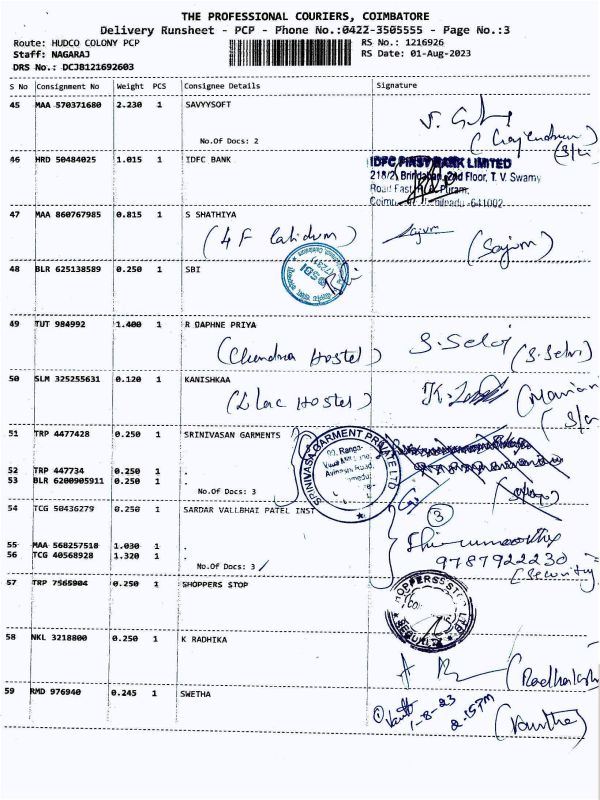 THE PROFESSIONAL COURIERS, COIMBATORE
Delivery Runsheet - PCP - Phone No.:0422-3505555 - Page No.:3
Route: HUDCO COLONY PCP
RS No.: 1216926
Staff: NAGARAJ
RS Date: 01-Aug-2023
DRS No.: DCJB121692603
S No Consignment No Weight PCS Consignee Details Signature
45 MAA 570371680 2.230 1 SAVVYSOFT
No.Of Docs: 2
46 HRD 50484025 1.015 1 IDFC BANK
IDFC FIRST BANK LIMITED
218/2, Brindaban, 2nd Floor, T. V. Swamy
Road East, R.S. Puram,
47 MAA 860767985 0.815 1 S SHATHIYA
48 BLR 625138589 0.250 1 SBI
SBI
49 TUT 984992 1.400 1 R DAPHNE PRIYA
S. Selvi (S. Selvi)
(Chandra Hostel)
50 SLM 325255631 0.120 1 KANISHKAA
(Lilac Hostel)
51 TRP 4477428 0.250 1 SRINIVASAN GARMENTS
SRINIVASA GARMENT PRIVATE LTD
52 TRP 447734 0.250 1 .
53 BLR 6200905911 0.250 1 .
No.Of Docs: 3
54 TCG 50436279 0.250 1 SARDAR VALLBHAI PATEL INST
3
55 MAA 568257518 1.030 1 .
56 TCG 40568928 1.320 1 .
No.Of Docs: 3
9787922230
(Security)
57 TRP 7565904 0.250 1 SHOPPERS STOP
SHOPPERS STOP LTD
SECURITY
58 NKL 3218800 0.250 1 K RADHIKA
59 RMD 976940 0.245 1 SWETHA
1-8-23
2.15PM